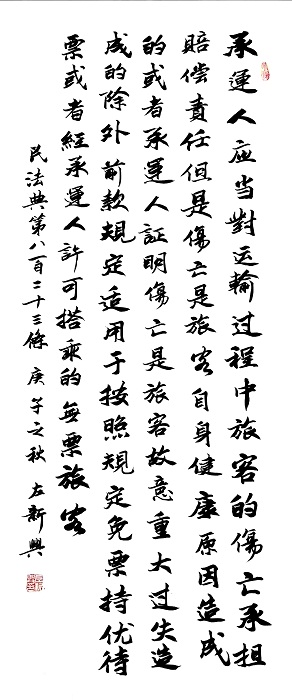 承運人应当對运輸过程中旅客的傷亡承担
賠偿責任但是傷亡是旅客自身健康原因造成
的或者承運人証明傷亡是旅客故意重大过失造
成的除外前款規定适用于按照規定免票持优待
票或者經承運人許可搭乘的無票旅客
民法典第八百二十三條 庚子之秋 左新興